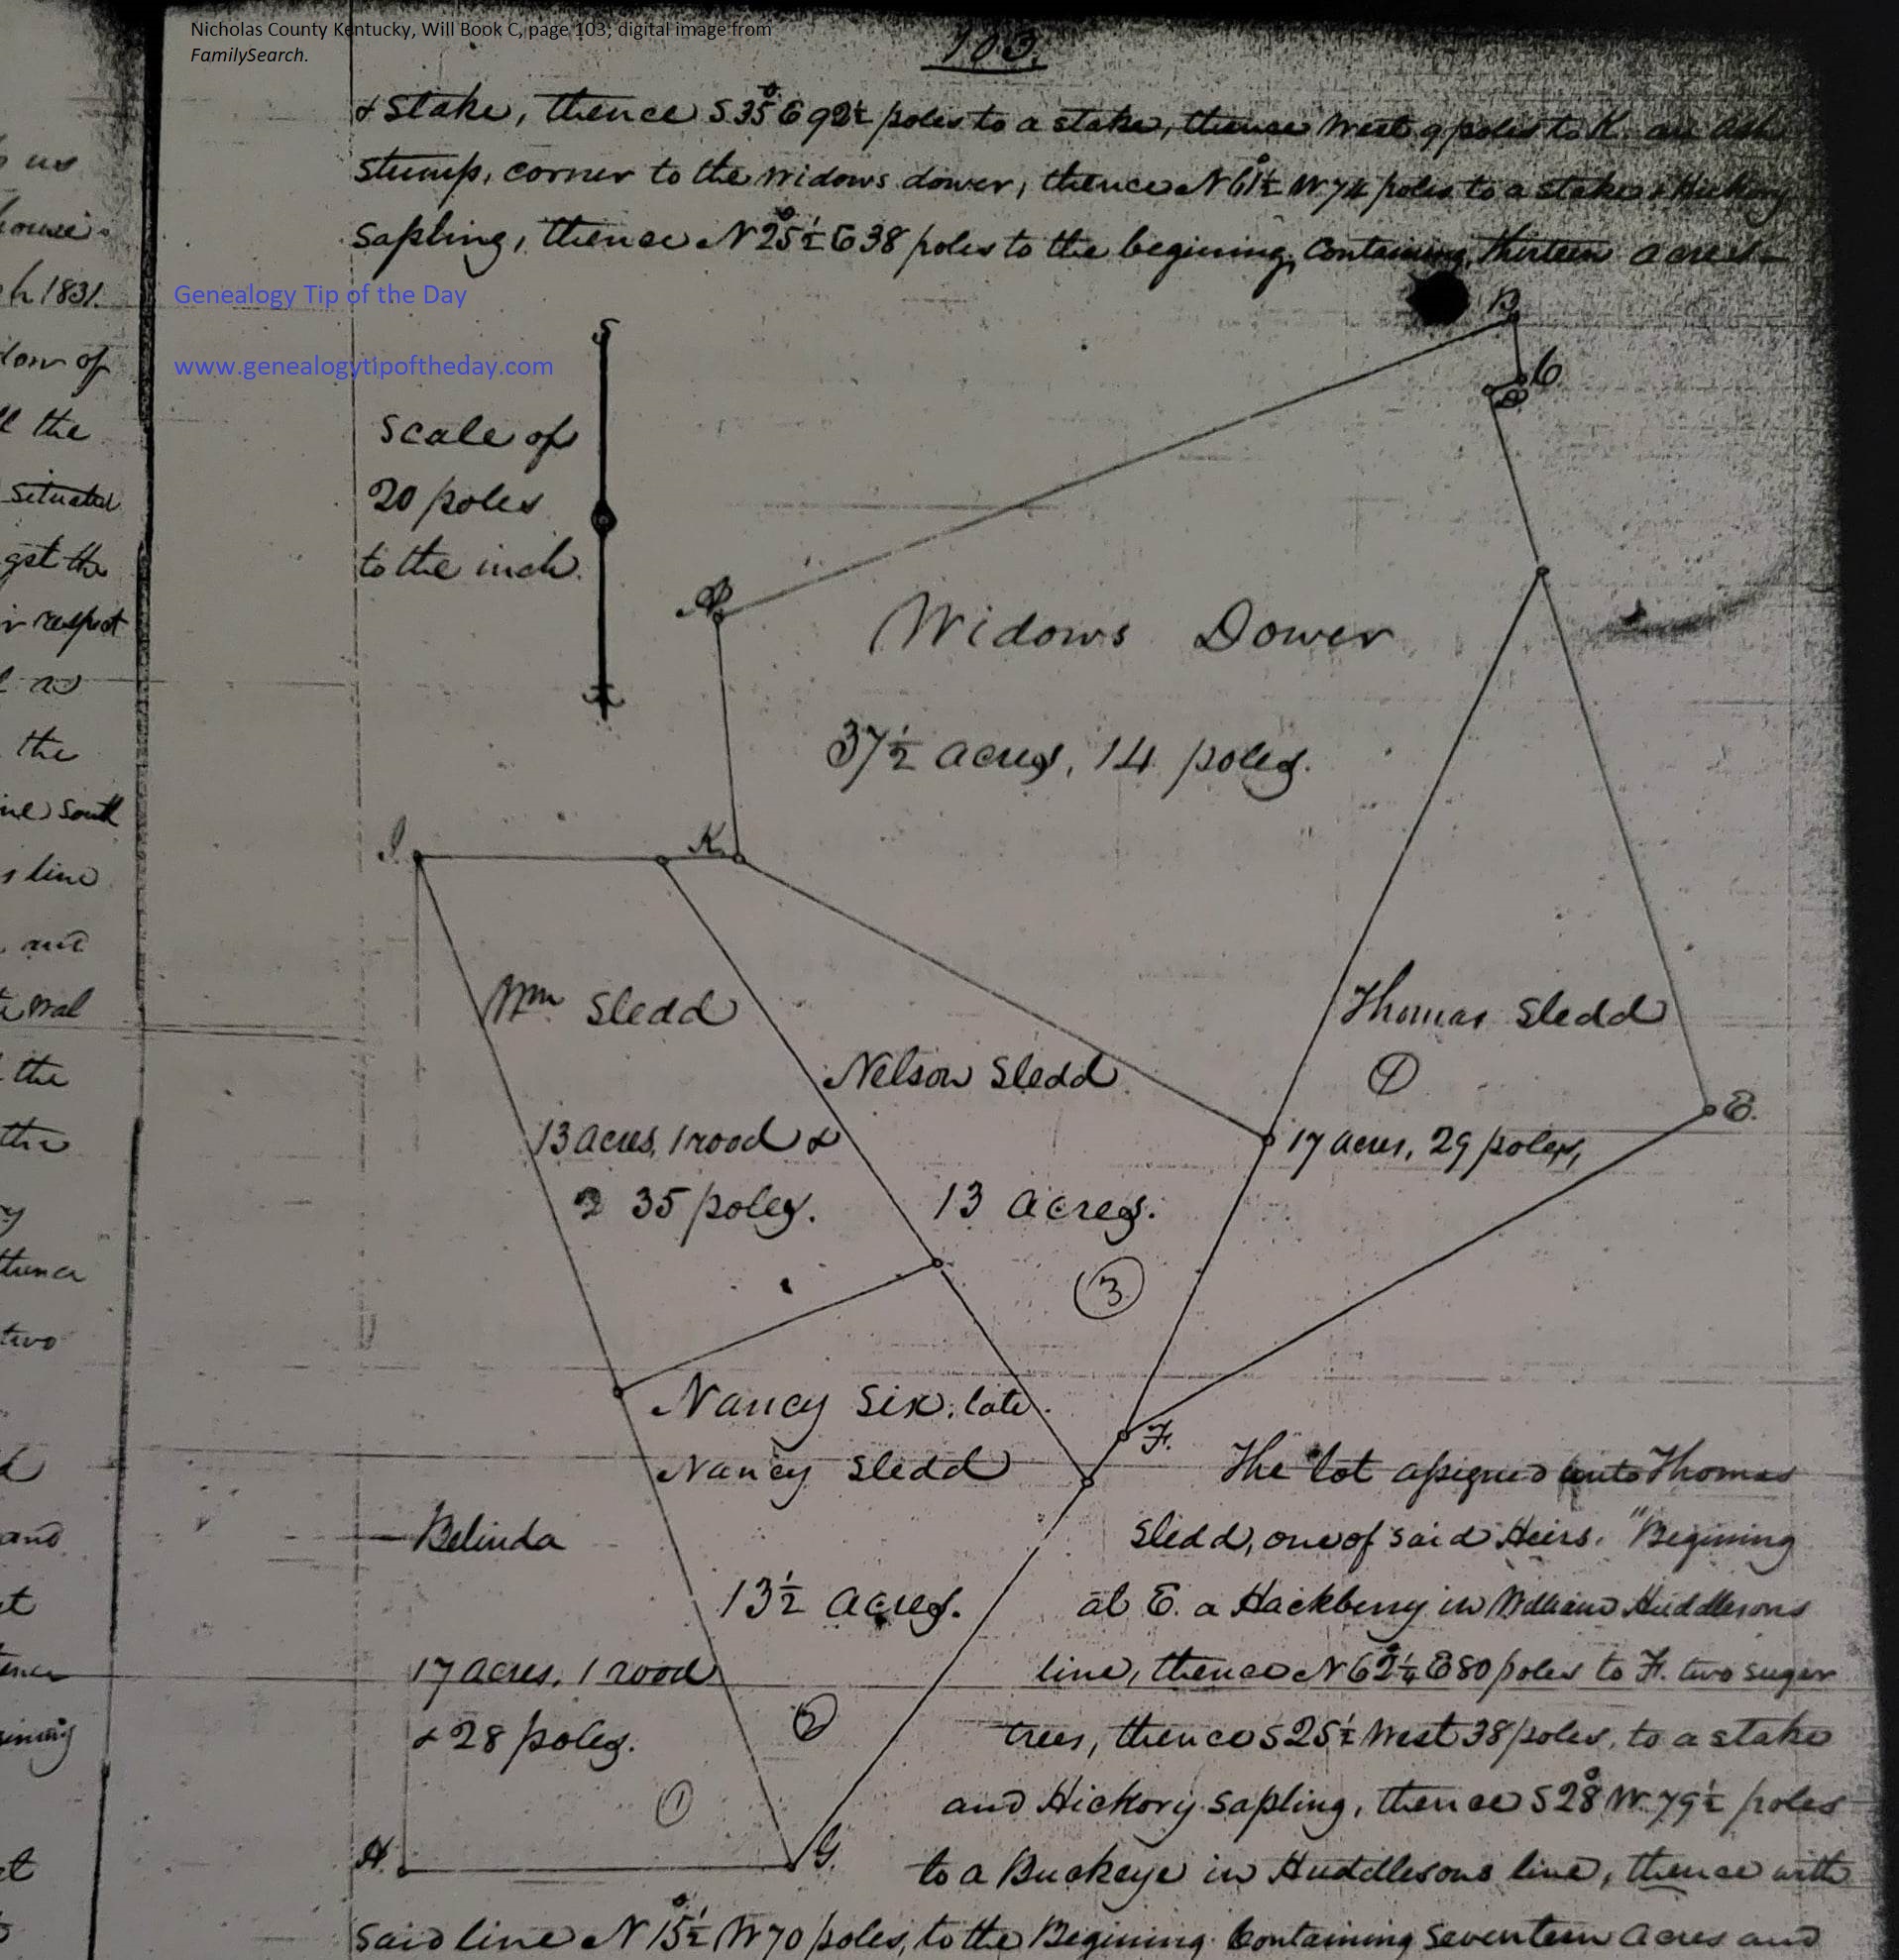 Nicholas County Kentucky, Will Book C, page 103; digital image from
FamilySearch.
103.
& Stake, thence S 35° E 92½ poles to a stake, thence West 9 poles to K. an ash
Stump, corner to the widows dower, thence N 61½° W 74 poles to a stake & Hickory
Sapling, thence N 25½° E 38 poles to the begining, Containing thirteen acres
Genealogy Tip of the Day
www.genealogytipoftheday.com
S
scale of
20 poles
to the inch.
B
C
D
A
Widows Dower
37½ acres, 14 poles.
I.
K.
Wm Sledd
Nelson Sledd
Thomas Sledd
13 acres, 1 rood &
35 poles.
13 acres.
3
17 acres, 29 poles,
E.
Nancy Six, late
Nancy Sledd
F.
Belinda
13½ acres.
17 acres, 1 rood
& 28 poles.
2
1
H.
G.
The lot assigned unto Thomas
Sledd, one of said Heirs. "Begining
at E. a Hackberry in William Huddlesons
line, thence N 62¼° E 80 poles to F. two suger
trees, thence S 25½ West 38 poles, to a stake
and Hickory sapling, thence S 28° W. 79½ poles
to a Buckeye in Huddlesons line, thence with
said line N 15½° W 70 poles, to the Begining. Containing seventeen acres and
us
house
h 1831.
dow of
ll the
situated
get the
r respect
as
the
line South
s line
and
the
the
thence
two
and
et
ining